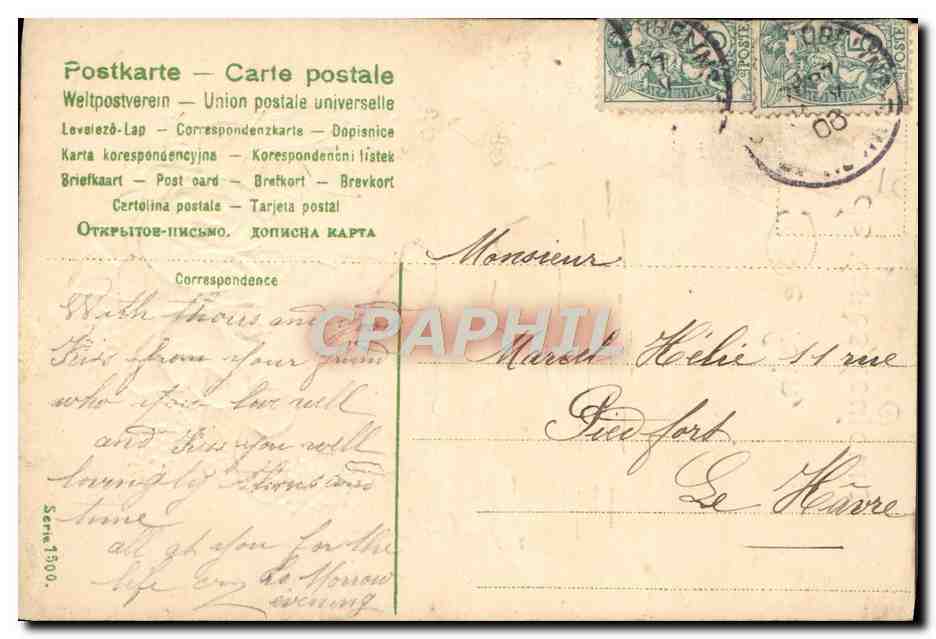 Postkarte — Carte postale
Weltpostverein — Union postale universelle
Levelező-Lap — Correspondenzkarte — Dopisnice
Karta korespondencyjna — Korespondenční lístek
Briefkaart — Post card — Brefkort — Brevkort
Cartolina postale — Tarjeta postal
Открытое-письмо. дописна карта
Correspondence
With and
Kiss from your friend
who you love well
and Kiss you well
lovingly and
time
all at you for the
life
to Morrow
evening
Serie 1500.
CPAPHIL
Monsieur
Marcel Hélie 11 rue
Piedfort
Le Hâvre
POSTES
08